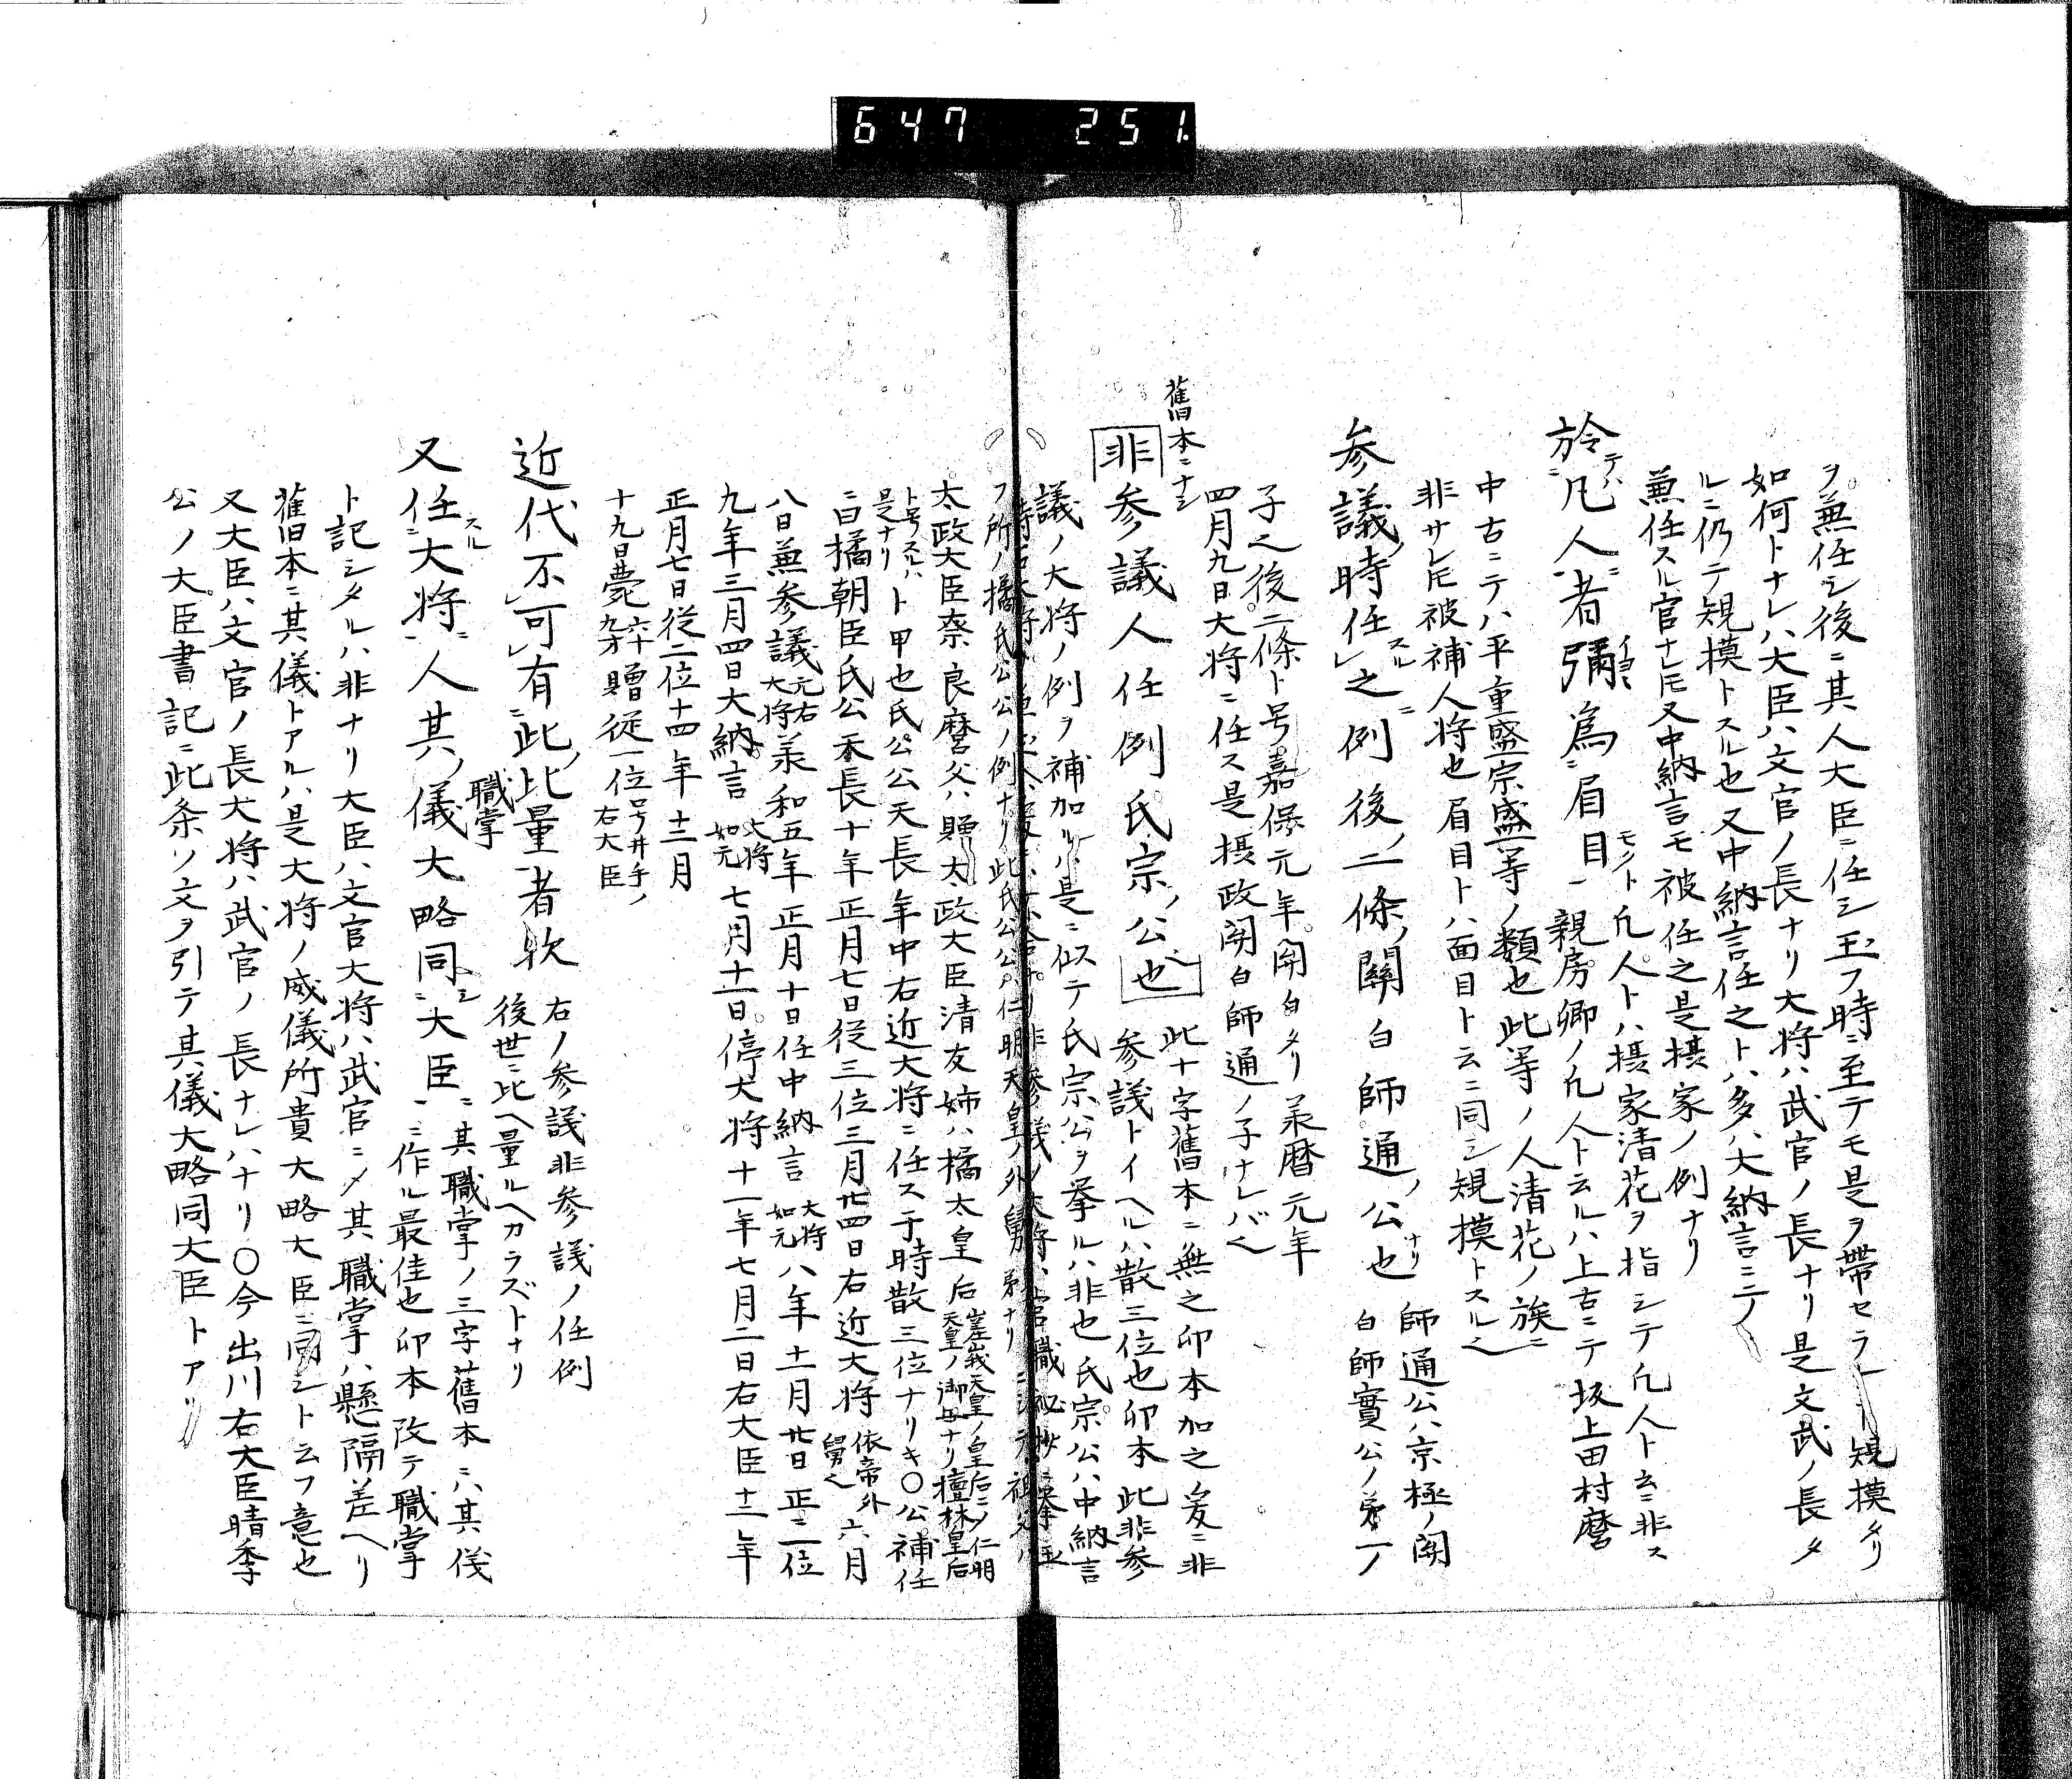 647 251
ヲ兼任シ後ニ其人大臣ニ任シ玉フ時ニ至テモ是ヲ帯セラ 規模タリ
如何トナレハ大臣ハ文官ノ長ナリ大将ハ武官ノ長ナリ是文武ノ長タ
ルニ仍テ規模トスル也又中納言任之トハ多ハ大納言ニテ
兼任スル官ナレ𪜈又中納言モ被任之是摂家ノ例ナリ
於テハ凡人ニ者彌イヨ〱為眉目一 モノト凢人トハ摂家清花ヲ指シテ凢人ト云ニ非ス
親房卿ノ凢人ト云ルハ上古ニテ坂上田村麿
中古ニテハ平重盛宗盛等ノ類也此等ノ人清花ノ族ニ
非サレ𪜈被補人将也眉目トハ面目ト云ニ同シ規模トスル也
参議ノ時任スルレ之ニ例後ノ二條ノ關白師通ノ公也ナリ 師通公ハ京極ノ関
白師實公ノ㐧一ノ
子也後二條ト号嘉保元年関白タリ承暦元年
四月九日大将ニ任ス是摂政関白師通ノ子ナレバ也
舊本ニナシ
非参議人任例氏宗ノ公也 此十字舊本ニ無之卯本加之爰ニ非
参議トイヘルハ散三位也卯本此非参
議ノ大将ノ例ヲ補加ルハ是ニ似テ氏宗公ヲ挙ルハ非也氏宗公ハ中納言
フ所ノ橘氏公公ノ例ナリ此氏公公ハ仁明天皇ノ外舅
太政大臣奈良麿父ハ贈太政大臣清友姉ハ橘太皇后 嵯峨天皇ノ皇后ニノ仁明
天皇ノ御母ナリ檀林皇后
ト号スルハ
是ナリ
ト甲也氏公公天長年中右近大将ニ任ス于時散三位ナリキ〇公補任
ニ曰橘朝臣氏公天長十年正月七日従三位三月廿四日右近大将 依帝外
舅也 六月
八日兼参議 元右
大将 承和五年正月十日任中納言 大将
如元 八年十一月廿日正二位
九年三月四日大納言 大将
如元 七月十一日停大将十一年七月二日右大臣十二年
正月七日従二位十四年十二月
十九日薨 六十
九才 贈従一位 号井手ノ
右大臣
近代不レ可レ有ニ此ノ比量一者欤 右ノ参議非参議ノ任例
後世ニ比ヘ量ルヘカラズトナリ
又任スルニ大将一ニ人其ノ儀職掌大略同シニ大臣一 ニ其職掌ノ三字舊本ニハ其儀
ニ作ル最佳也卯本改テ職掌
ト記シタルハ非ナリ大臣ハ文官大将ハ武官ニ〆其職掌ハ懸隔差ヘリ
舊本ニ其儀トアルハ是大将ノ威儀所貴大略大臣ニ同シト云フ意也
又大臣ハ文官ノ長大将ハ武官ノ長ナレハナリ〇今出川右大臣晴季
公ノ大臣書記ニ此条ソ文ヲ引テ其儀大略同大臣トアリ